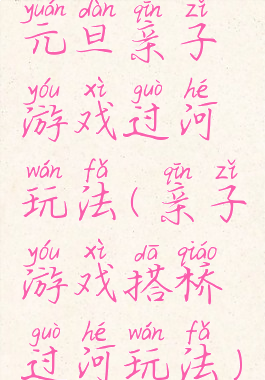 yuán dàn qīn zǐ
元旦亲子
yóu xì guò hé
游戏过河
wán fǎ qīn zǐ
玩法(亲子
yóu xì dā qiáo
游戏搭桥
guò hé wán fǎ
过河玩法)